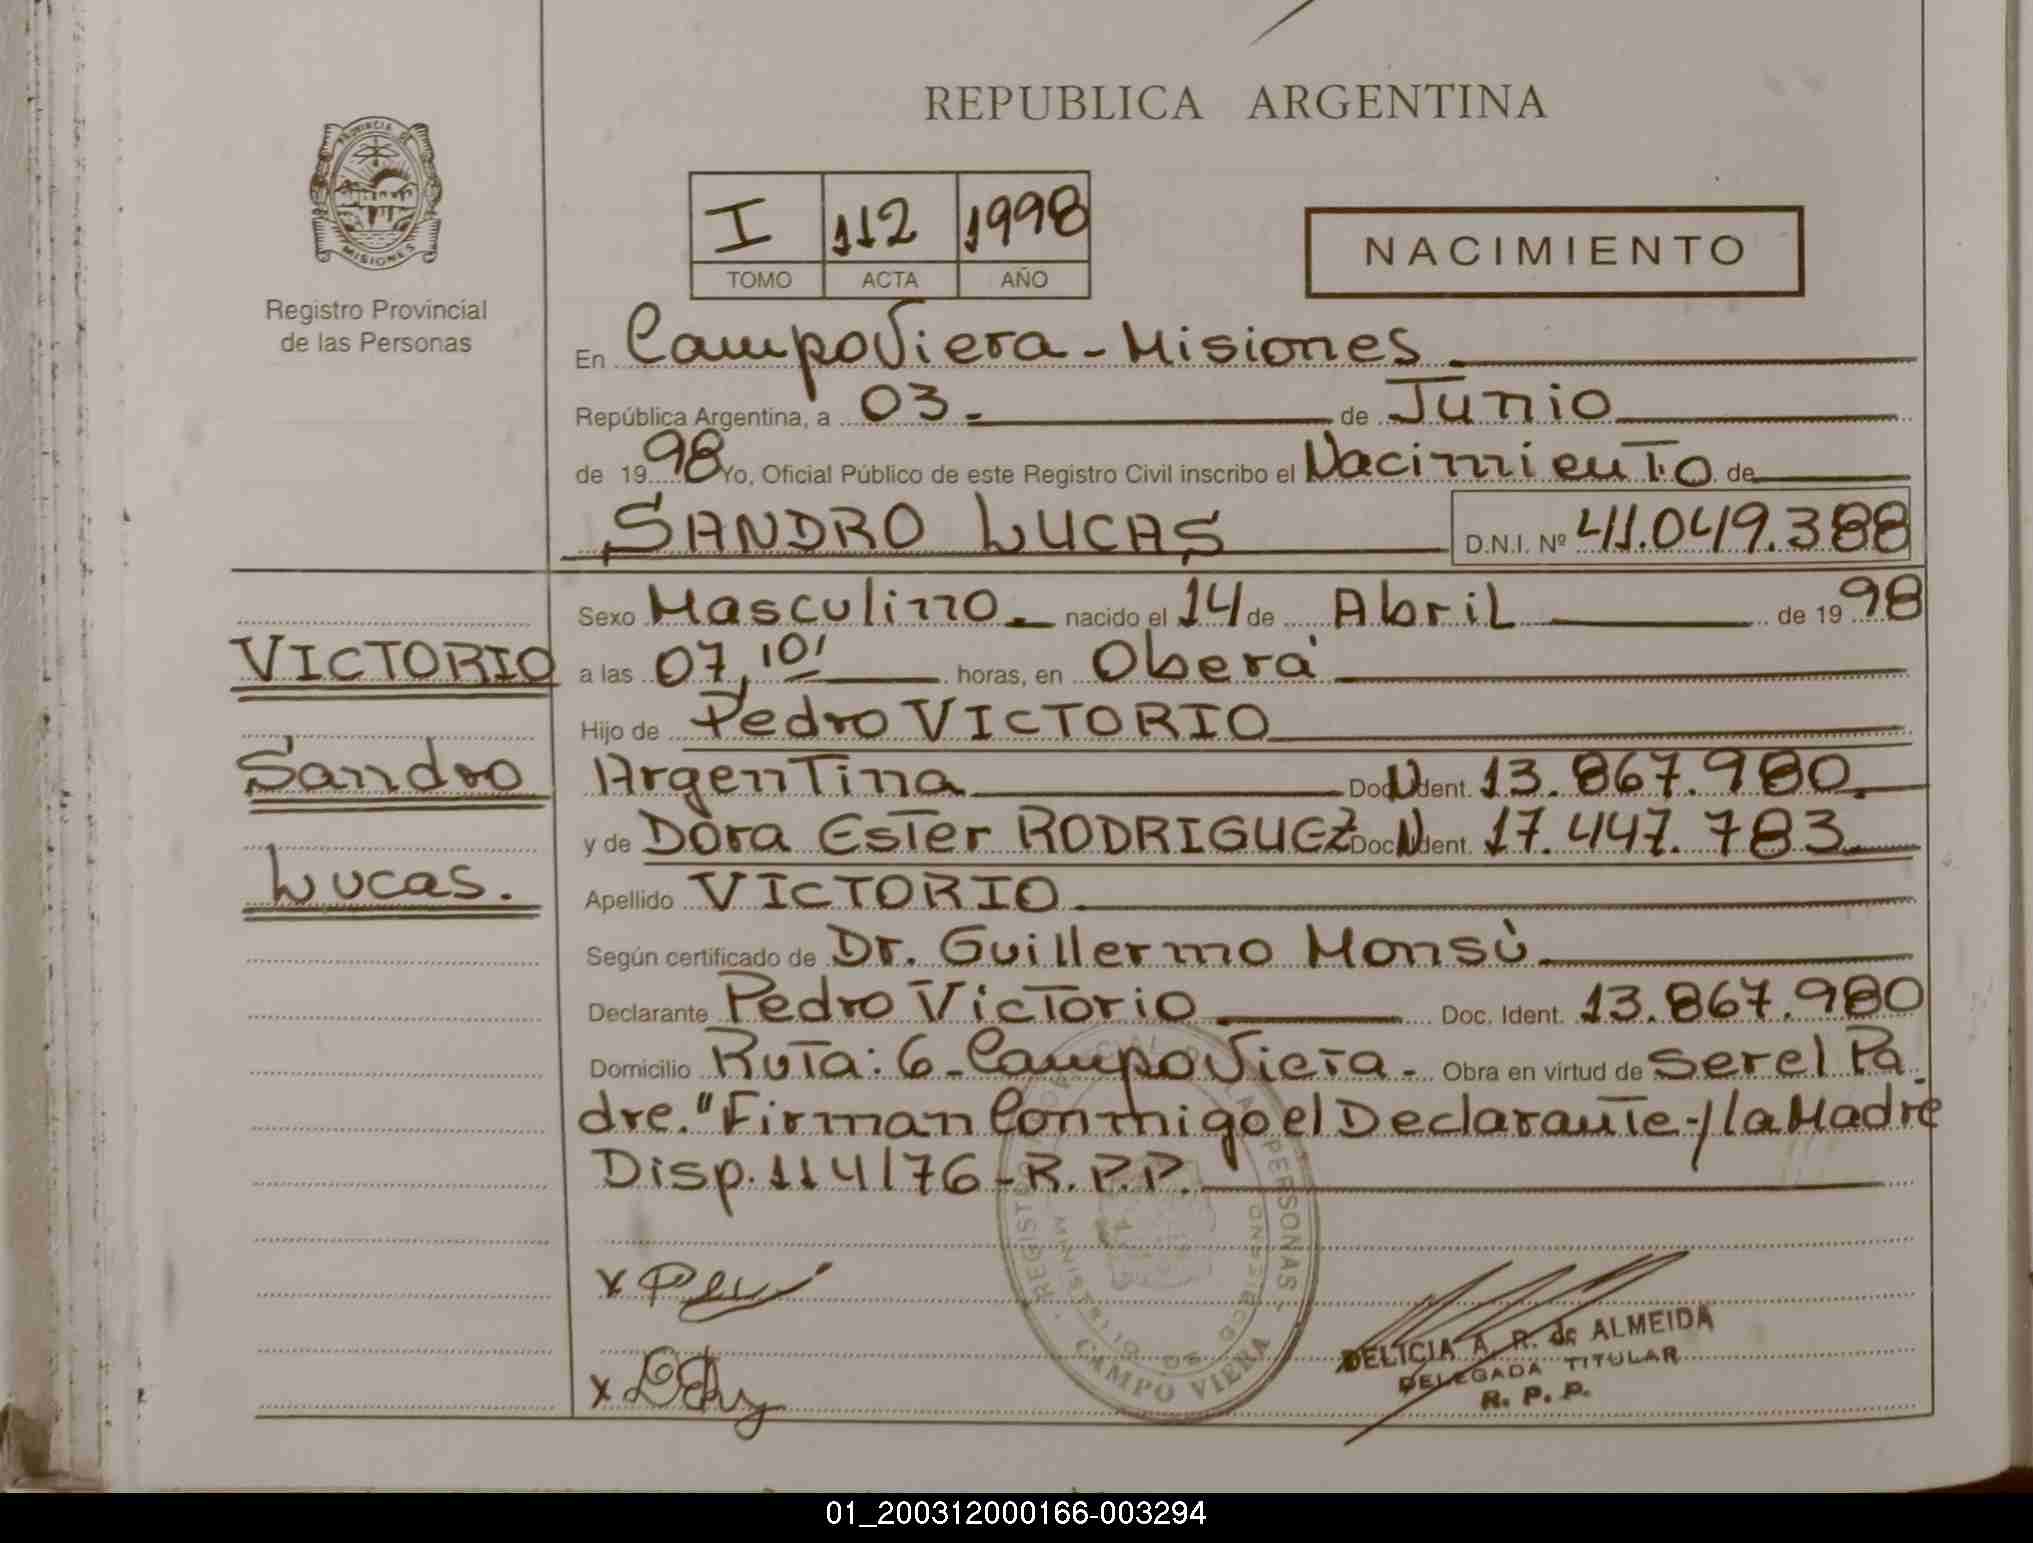 REPUBLICA ARGENTINA
PROVINCIA DE
MISIONES
Registro Provincial
de las Personas
I 112 1998
TOMO ACTA AÑO
NACIMIENTO
En Campo Viera - Misiones
República Argentina, a 03 - de Junio
de 1998 Yo, Oficial Público de este Registro Civil inscribo el Nacimiento de
SANDRO LUCAS D.N.I. Nº 41.049.388
Sexo Masculino - nacido el 14 de Abril de 1998
VICTORIO
a las 07,10' horas, en Oberá
Hijo de Pedro VICTORIO
Sandro
Argentina Doc. Ident. 13.867.980.
y de Dora Ester RODRIGUEZ Doc. Ident. 17.447.783
Lucas.
Apellido VICTORIO
Según certificado de Dr. Guillermo Monsù
Declarante Pedro Victorio Doc. Ident. 13.867.980
Domicilio Ruta: 6 - Campo Viera - Obra en virtud de ser el Pa
dre. "Firman Conmigo el Declarante y la Madre
Disp. 114/76 - R.P.P.
REGISTRO PROVINCIAL DE LAS PERSONAS
MINISTERIO DE GOBIERNO
CAMPO VIERA
DELICIA A. R. de ALMEIDA
DELEGADA TITULAR
R. P. P.
01_200312000166-003294